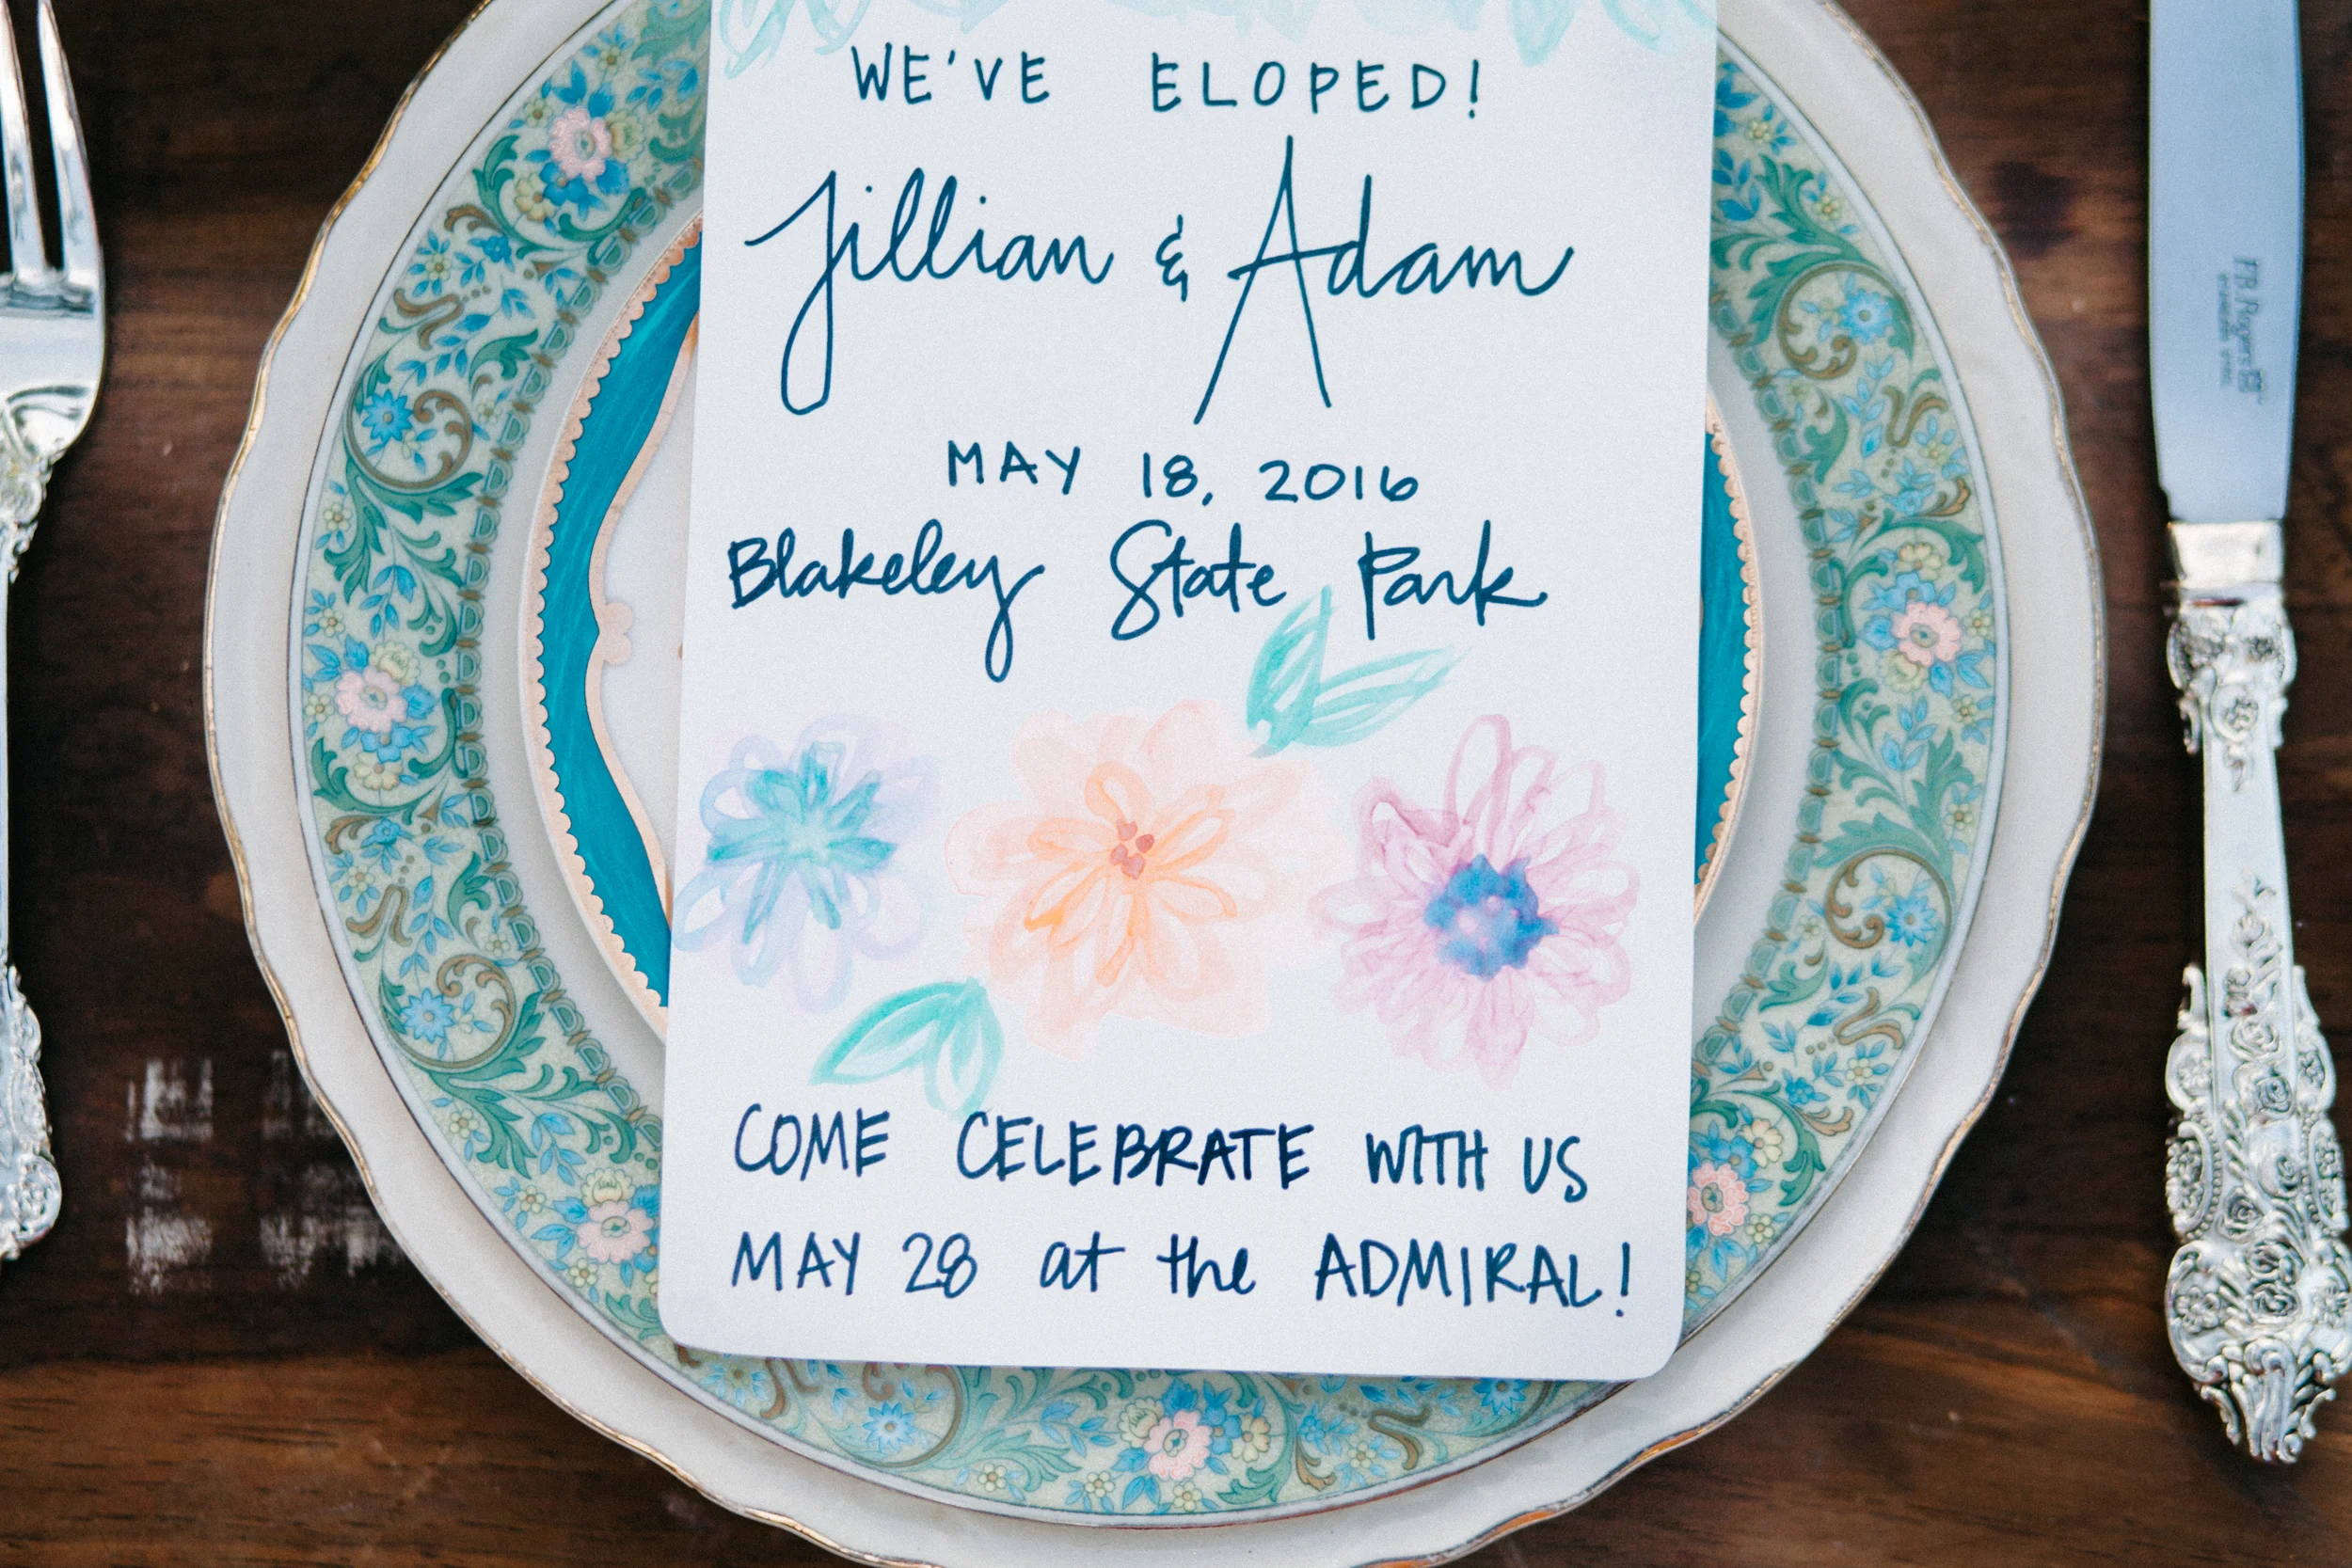 WE'VE ELOPED!
Jillian & Adam
MAY 18, 2016
Blakeley State Park
COME CELEBRATE WITH US
MAY 28 at the ADMIRAL!
F.B. Rogers